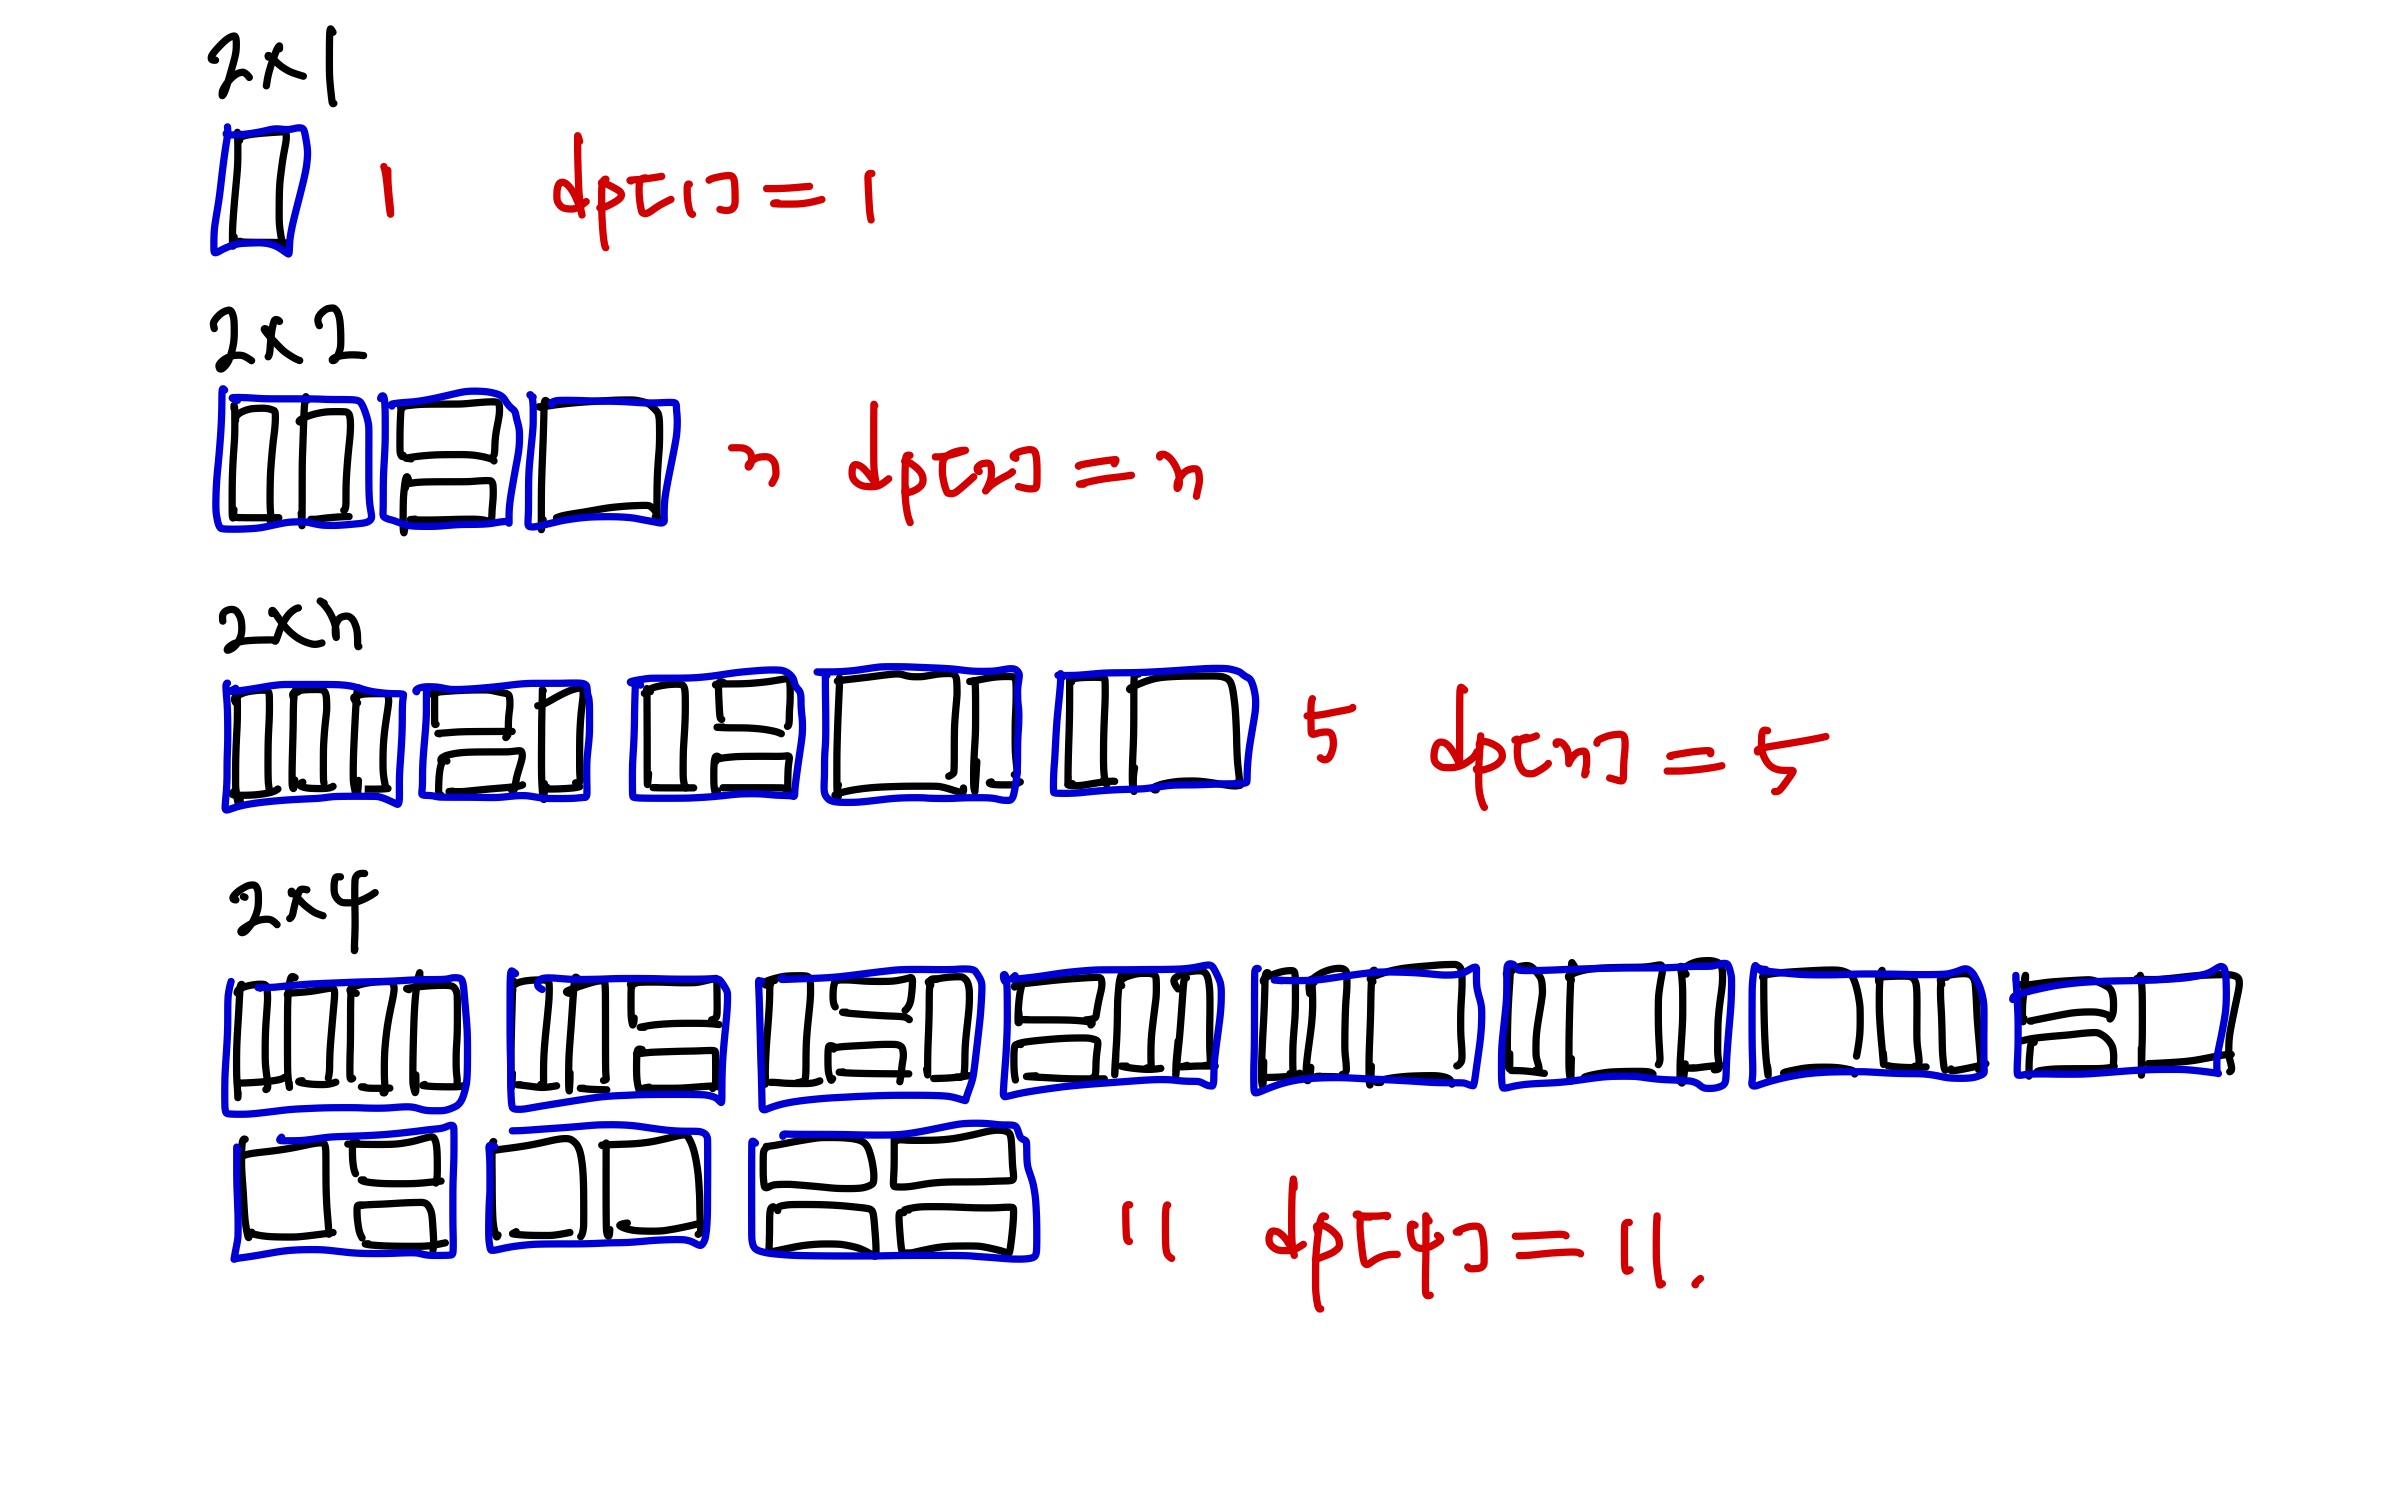 2x1
1 dp[1] = 1
2x2
3 dp[2] = 3
2x3
5 dp[3] = 5
2x4
11 dp[4] = 11.